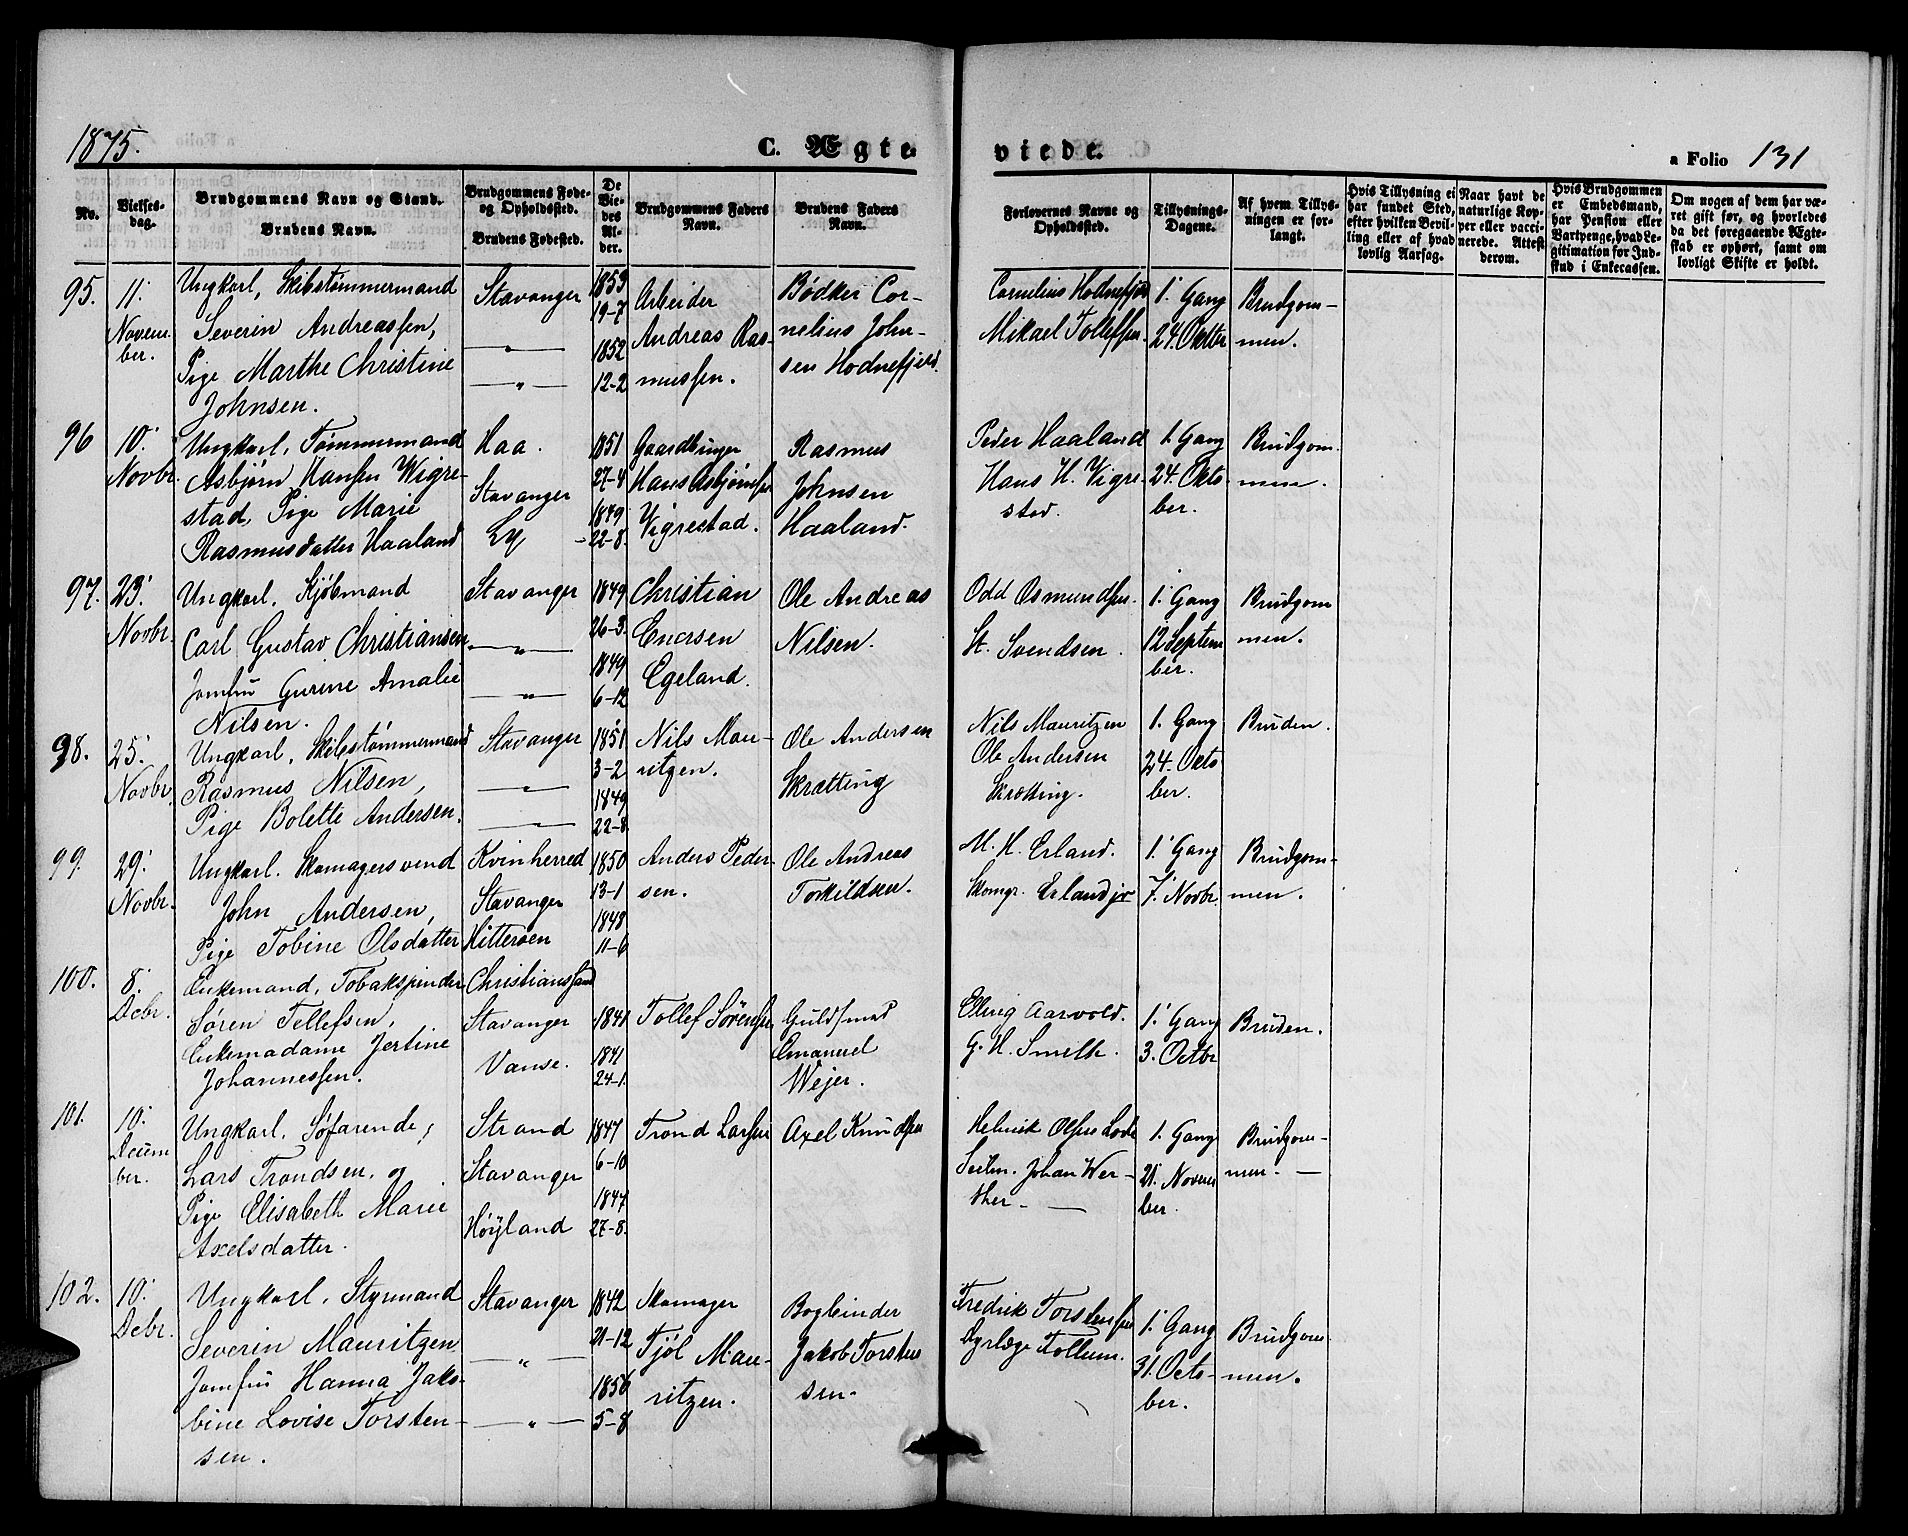 1875. C. Ægte viede. a Folio 131
No. Vielses-dag. Brudgommens Navn og Stand. Brudens Navn. Brudgommens Føde- og Opholdssted. Brudens Fødested. De Viedes Alder. Brudgommens Faders Navn. Brudens Faders Navn. Forlovernes Navne og Opholdssted. Tillysnings-Dagene. Af hvem Tillysningen er forlangt. Hvis Tillysning ei har fundet Sted, efter hvilken Bevilling eller af hvad lovlig Aarsag. Naar havt de naturlige Kopper eller vaccinerede. Attest derom. Hvis Brudgommen er Embedsmand, har Pension eller Vartpenge, hvad Legitimation for Indskud i Enkecassen. Om nogen af dem har været gift før, og hvorledes da det foregaaende Ægteskab er ophørt, samt om lovligt Skifte er holdt.
95. 11' Ungkarl, Skibstømmermand Stavanger 1853 Arbeider Bødker Cor- Cornelius Hodnefjeld 1' Gang Brudgom-
Novem- Severin Andreassen, —"— 19-7 Andreas Ras- nelius John- Mikael Tolleffsen 24. Oktbr men.
ber. Pige Marthe Christine —"— 1852 12-2 mussen. sen Hodnefjeld.
Johnsen.
96 10' Ungkarl, Tømmermand Haa. 1851 Gaardbruger Rasmus Peder Haaland 1. Gang Brudgom
Novbr. Asbjørn Hansen Wigre- Stavanger 27-4 Hans Asbjørnsen Johnsen Hans H. Vigre- 24. Okto men.
stad, Pige Marie 1849 Vigrestad. Haaland. stad. ber.
Rasmusdatter Haaland Ly - 22-8.
97. 23' Ungkarl, Kjøbmand Stavanger 1849 Christian Ole Andreas Odd Osmundsen. 1' Gang Brudgom
Novbr. Carl Gustav Christiansen —"— 26-3. Enersen Nilsen. St. Svendsen. 12 Septem men.
Jomfru Gurine Amalie —"— 1849 6-12 Egeland. ber.
Nilsen.
98. 25' Ungkarl, Skibstømmermand Stavanger 1851 Nils Mau- Ole Andersen Nils Mauritzen 1. Gang Bruden.
Novbr. Rasmus Nilsen, —"— 3-2 ritzen. Skrætting Ole Andersen 24. Octo
Pige Bolette Andersen. —"— 1849 22-8. Skrætting. ber.
99. 29' Ungkarl. Skomagersvend Kvinherred 1850 Anders Peder- Ole Andreas M. H. Erland. 1' Gang Brudgom-
Novbr. John Andersen, Stavanger 13-1 sen. Torkildsen. Skomgr. Erland jr 7' Novbr. men.
Pige Tobine Olsdatter Hitterøen 1848 11-6
100. 8' Enkemand, Tobakspinder Christianssand
Decbr. Søren Tellefsen, Stavanger 1841 Tollef Sørensen Guldsmed Elling Aarvold. 1' Gang Bruden.
Enkemadame Jertine Vanse. 1841 Emanuel G. H. Smith. 3. Octbr
Johannessen. 24-1. Wejer.
101. 10' Ungkarl, Søfarende, Strand 1847 Trond Larsen Axel Knudsen Helmik Olsen Lode 1. Gang Brudgom-
Decem Lars Trondsen, og Stavanger 6-10 Seilm. Johan Wer- 21. Novem men. —
ber. Pige Elisabeth Marie Höyland 1847 27-8. ther. — ber.
Axelsdatter.
102. 10' Ungkarl, Styrmand Stavanger 1842 Skomager Bogbinder Fredrik Torstensen 1' Gang Brudgom-
Decbr. Severin Mauritzen —"— 21-12 Tjøl Mau- Jakob Torsten Dyrlæge Tollum. 31. Octo- men.
Jomfru Hanna Jako- 1856 ritzen. sen. ber.
bine Lovise Torsten- —"— 5-8
sen.